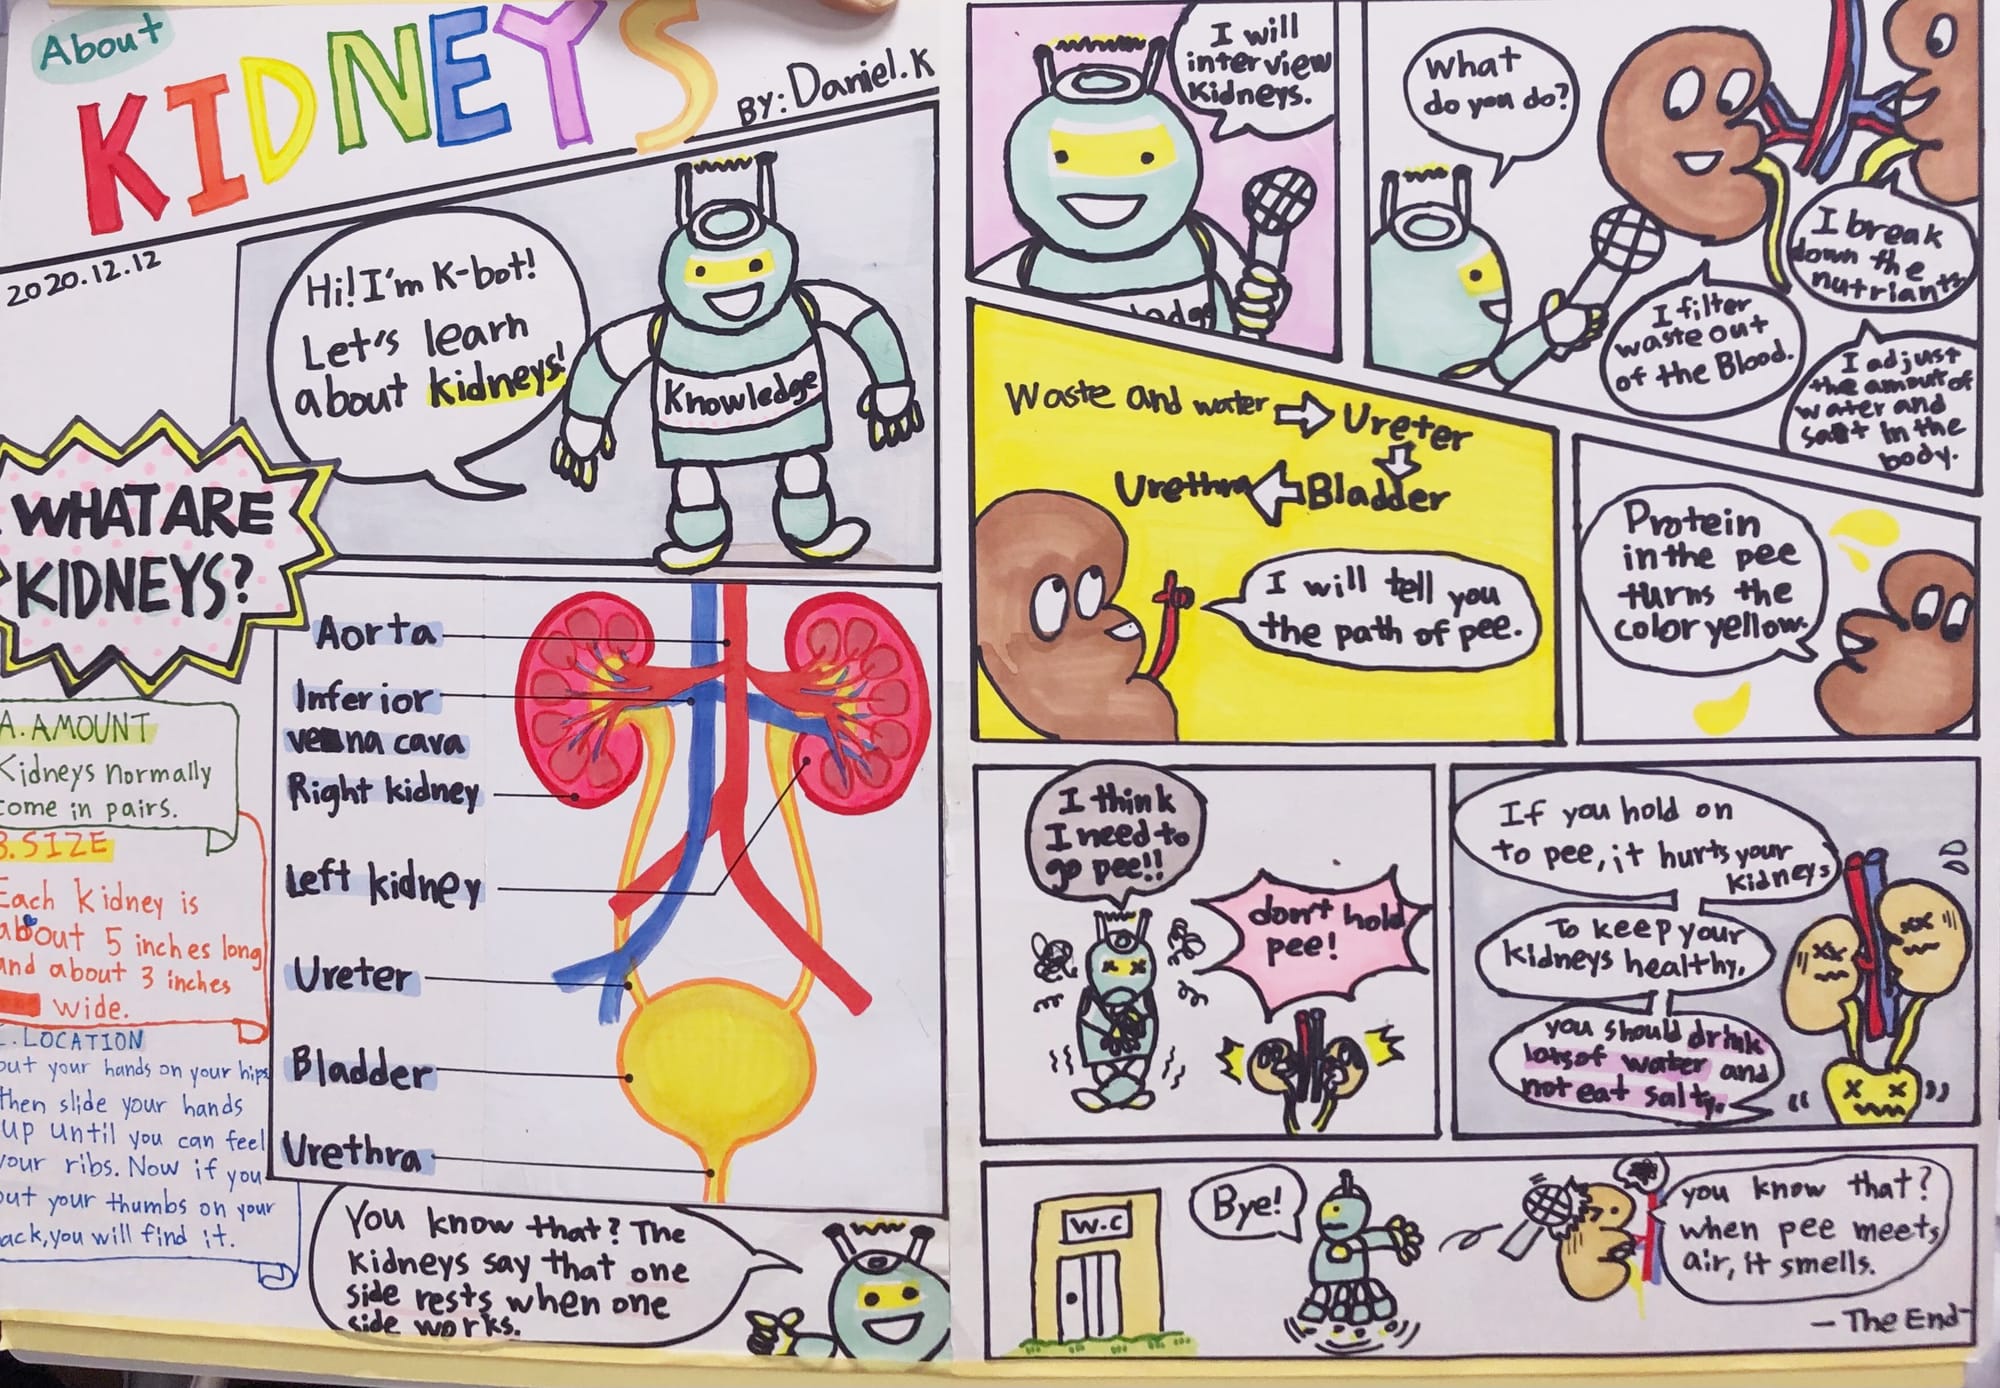 About
KIDNEYS
BY: Daniel.K
2020.12.12
Hi! I'm K-bot!
Let's learn
about kidneys!
Knowledge
WHAT ARE
KIDNEYS?
A. AMOUNT
Kidneys normally
come in pairs.
B. SIZE
Each kidney is
about 5 inches long
and about 3 inches
wide.
C. LOCATION
put your hands on your hips
then slide your hands
up until you can feel
your ribs. Now if you
put your thumbs on your
back, you will find it.
Aorta
Inferior
vena cava
Right kidney
Left kidney
Ureter
Bladder
Urethra
You know that? The
kidneys say that one
side rests when one
side works.
I will
interview
Kidneys.
What
do you do?
I filter
waste out
of the Blood.
I break
down the
nutriants
I adjust
the amout of
water and
salt in the
body.
Waste and water ⇨ Ureter
Urethra ⇦ Bladder
I will tell you
the path of pee.
Protein
in the pee
turns the
color yellow.
I think
I need to
go pee!!
don't hold
pee!
If you hold on
to pee, it hurts your
kidneys
To keep your
kidneys healthy,
you should drink
lots of water and
not eat salty.
W.C
Bye!
you know that?
when pee meets
air, it smells.
- The End -